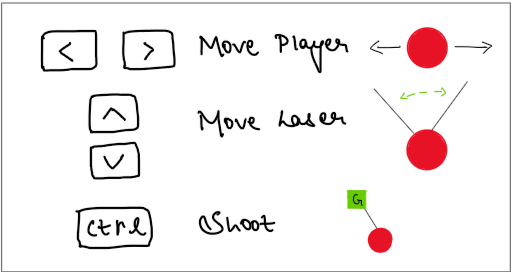 < > Move Player
^
Move Laser
v
ctrl Shoot
G